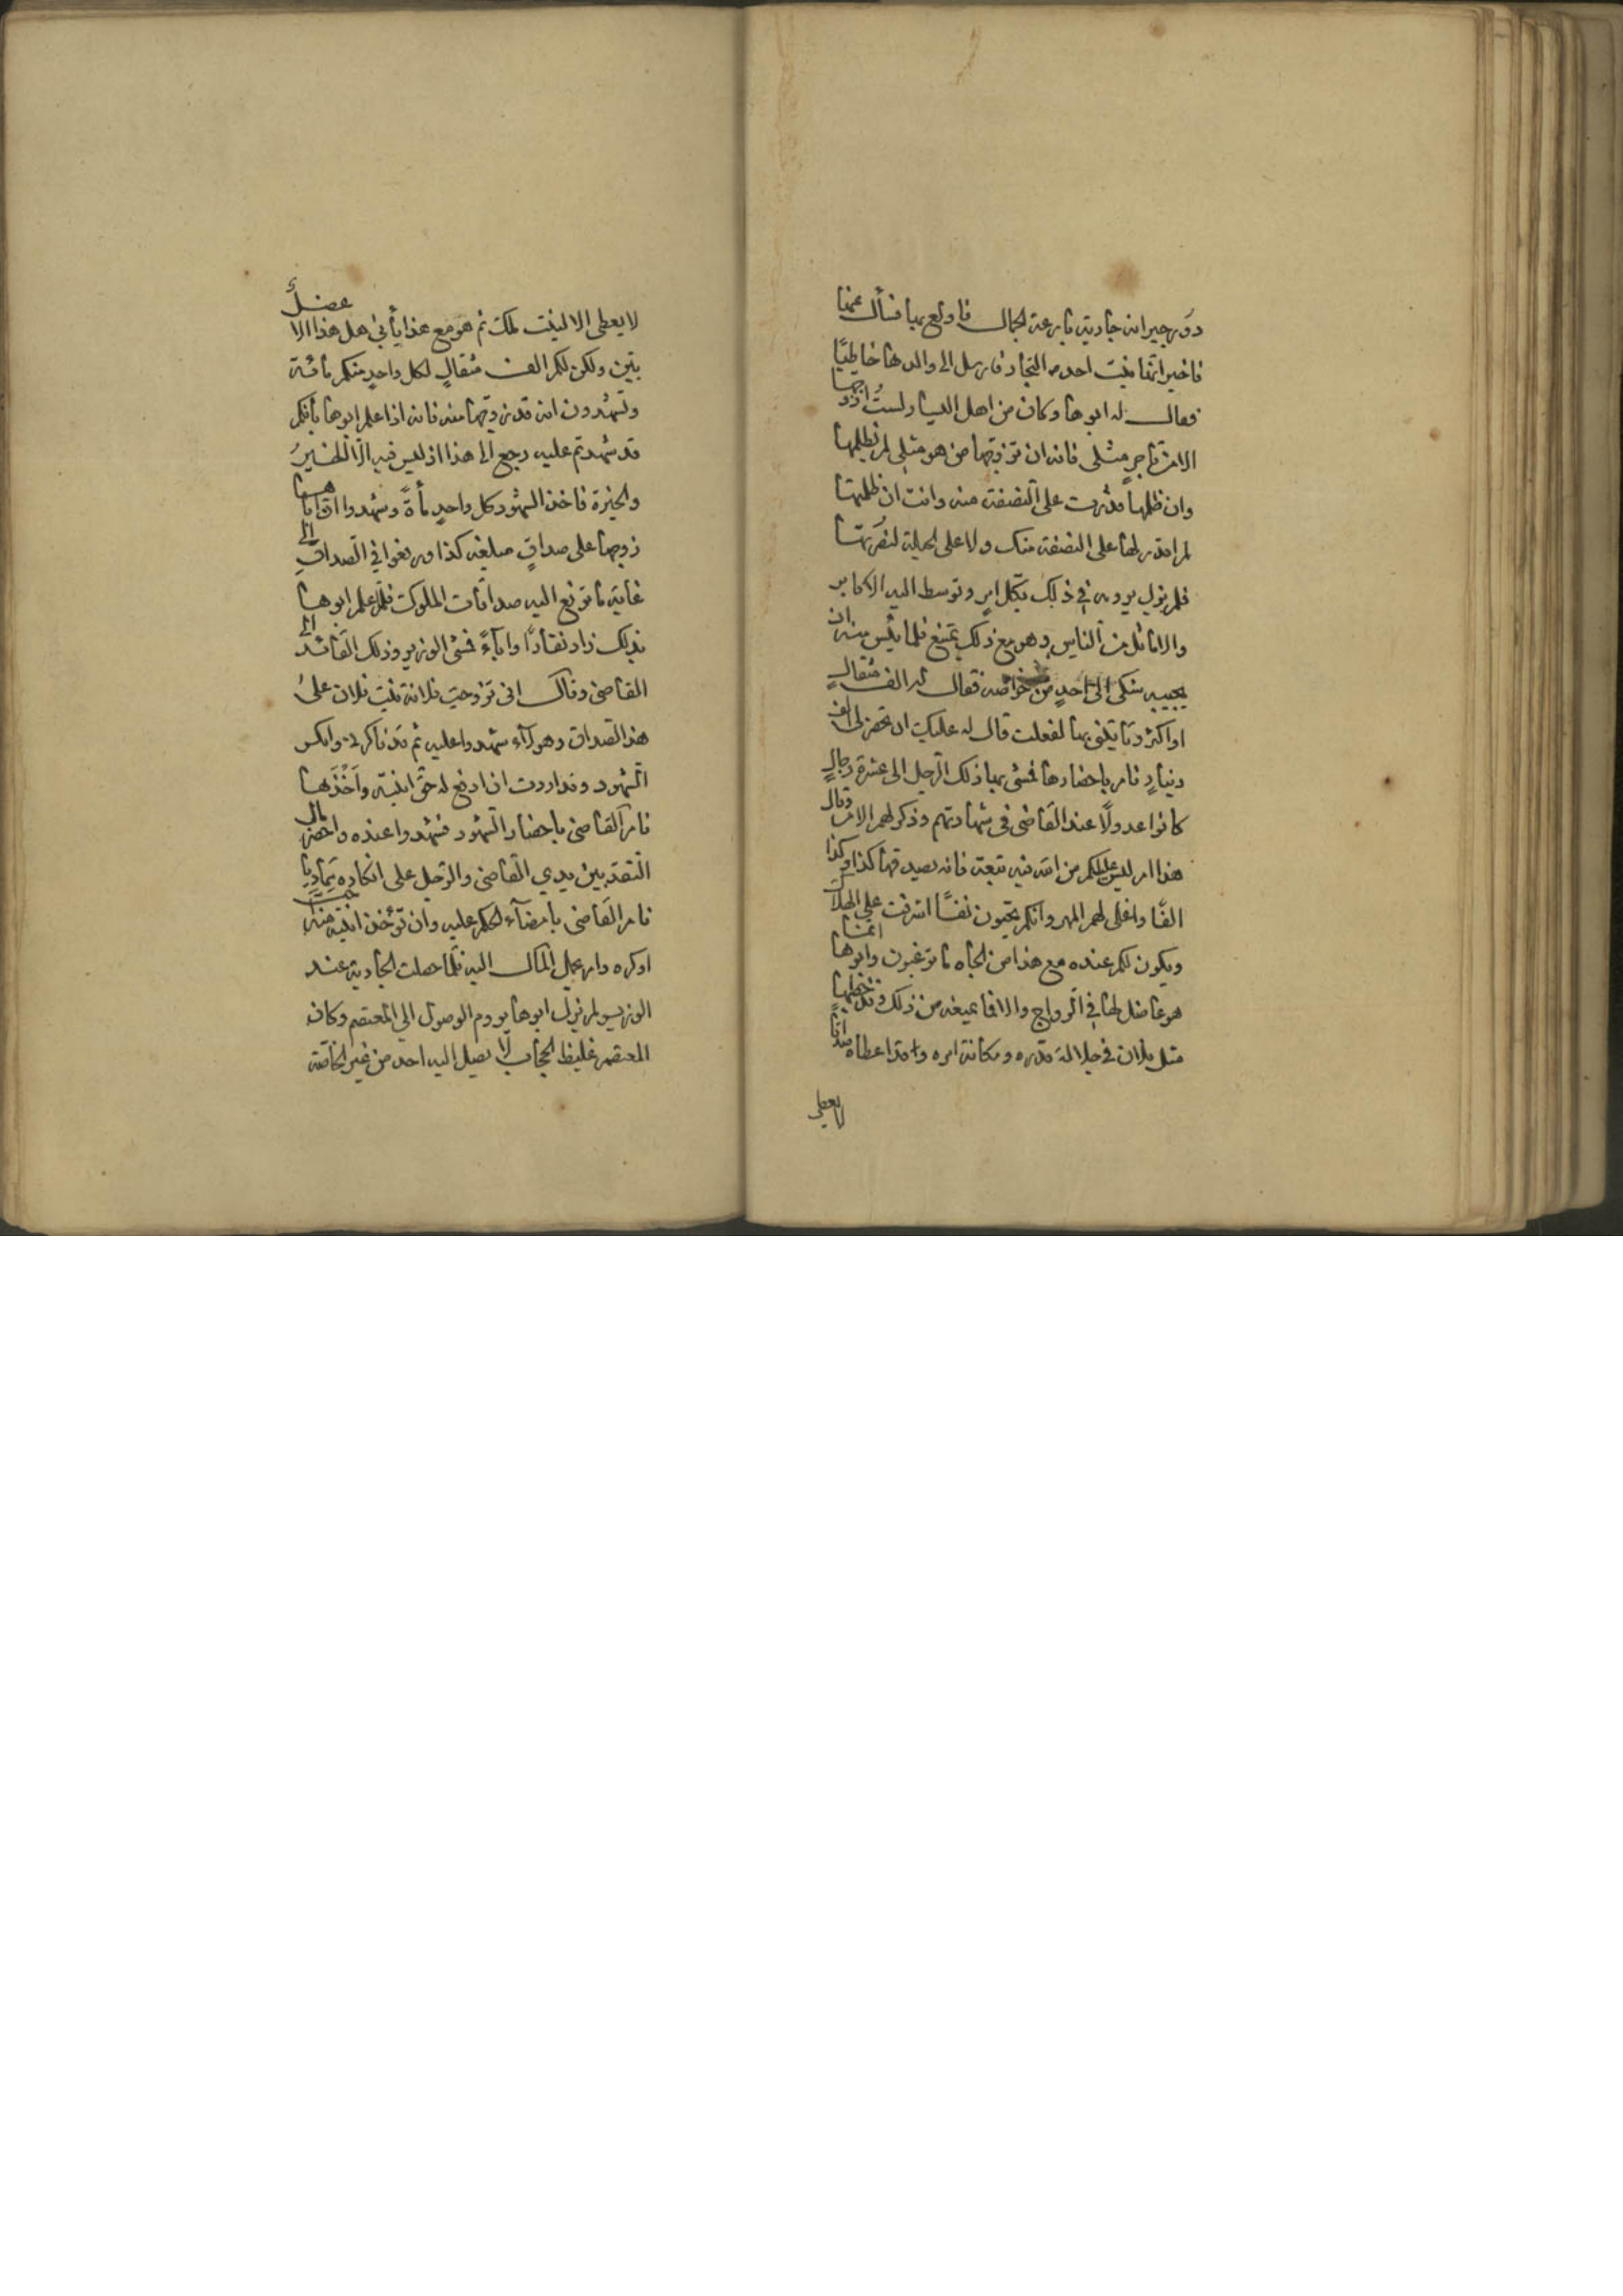 دور جيرانه جارية بارعة الجمال فاولع بها فسأل عنها
فاخبر انها بنت احد من التجار فارسل الى والدها خاطبًا
فقال له ابوها وكان من اهل اليسار لست ازوجها
الا من تاجر مثلي فانه ان تزوجها من هو مثلي لم يظلمها
وان ظلمها قدرت على النصفة منه وانت ان ظلمتها
لم اقدر لها على النصفة منك ولا على الحيلة لنصرتها
فلم يزل يرومه في ذلك بكل امر وتوسط اليه الاكابر
والاماثل من الناس وهو مع ذلك يمتنع فلما يئس منه ان
يجيبه شكى الى احد من خواصه فقال له الف مثقال
او اكثر وتأتيني بها لفعلت قال له عليك ان تحضر لي الف
دينار فامر باحضارها فمشى بها ذلك الرجل الى عشرة رجال
كانوا عدولًا عند القاضي في شهادتهم وذكر لهم الامر وقال
هذا امر ليس عليكم من الله فيه تبعة فانه يصدقها كذا وكذا
الفًا واغلى لهم المهر وانكم تحيون نفسًا اشرفت على الهلاك
ويكون لكم عنده مع هذا من الجاه ما ترغبون وابوها انما
هو عاضل لها في الزواج والا فما يمنعه من ذلك وقد خطبها
مثل فلان في جلالة قدره ومكانة امره وقد اعطاه صداقًا
لا يعطى
لا يعطى الا لبنت ملك ثم هو مع هذا يأبى هل هذا الا عضلٌ
بيّن ولكن لكم الف مثقال لكل واحد منكم مائة
وتشهدون انه قد زوجها منه فانه اذا علم ابوها بأنكم
قد شهدتم عليه رجع الى هذا اذ ليس فيه الا الخير
والخيرة فاخذ الشهود كل واحد مأةً وشهدوا ان اباها
زوجها على صداق مبلغه كذا ورفعوا في الصداق الى
غاية ما ترفع اليه صداقات الملوك فلما علم ابوها
بذلك زاد نفارًا واباءً فمشى الوزير وذلك القائد الى
القاضي وقال اني تزوجت فلانة بنت فلان على
هذا الصداق وهولاء شهدوا عليه ثم قد ناكرني وانكر
الشهود وقد اردت ان ادفع له حق ابنته وآخذها
فامر القاضي باحضار الشهود فشهدوا عنده واحضر مال
النقد بين يدي القاضي والرجل على انكاره يتمادى
فامر القاضي بامضاء الحكم عليه وان تؤخذ ابنته منه احب
او كره وامر بحمل المال اليه فلما حصلت الجارية عند
الوزير لم يزل ابوها يروم الوصول الى المعتصم وكان
المعتصم غليظ الحجاب لا يصل اليه احد من غير الخاصة